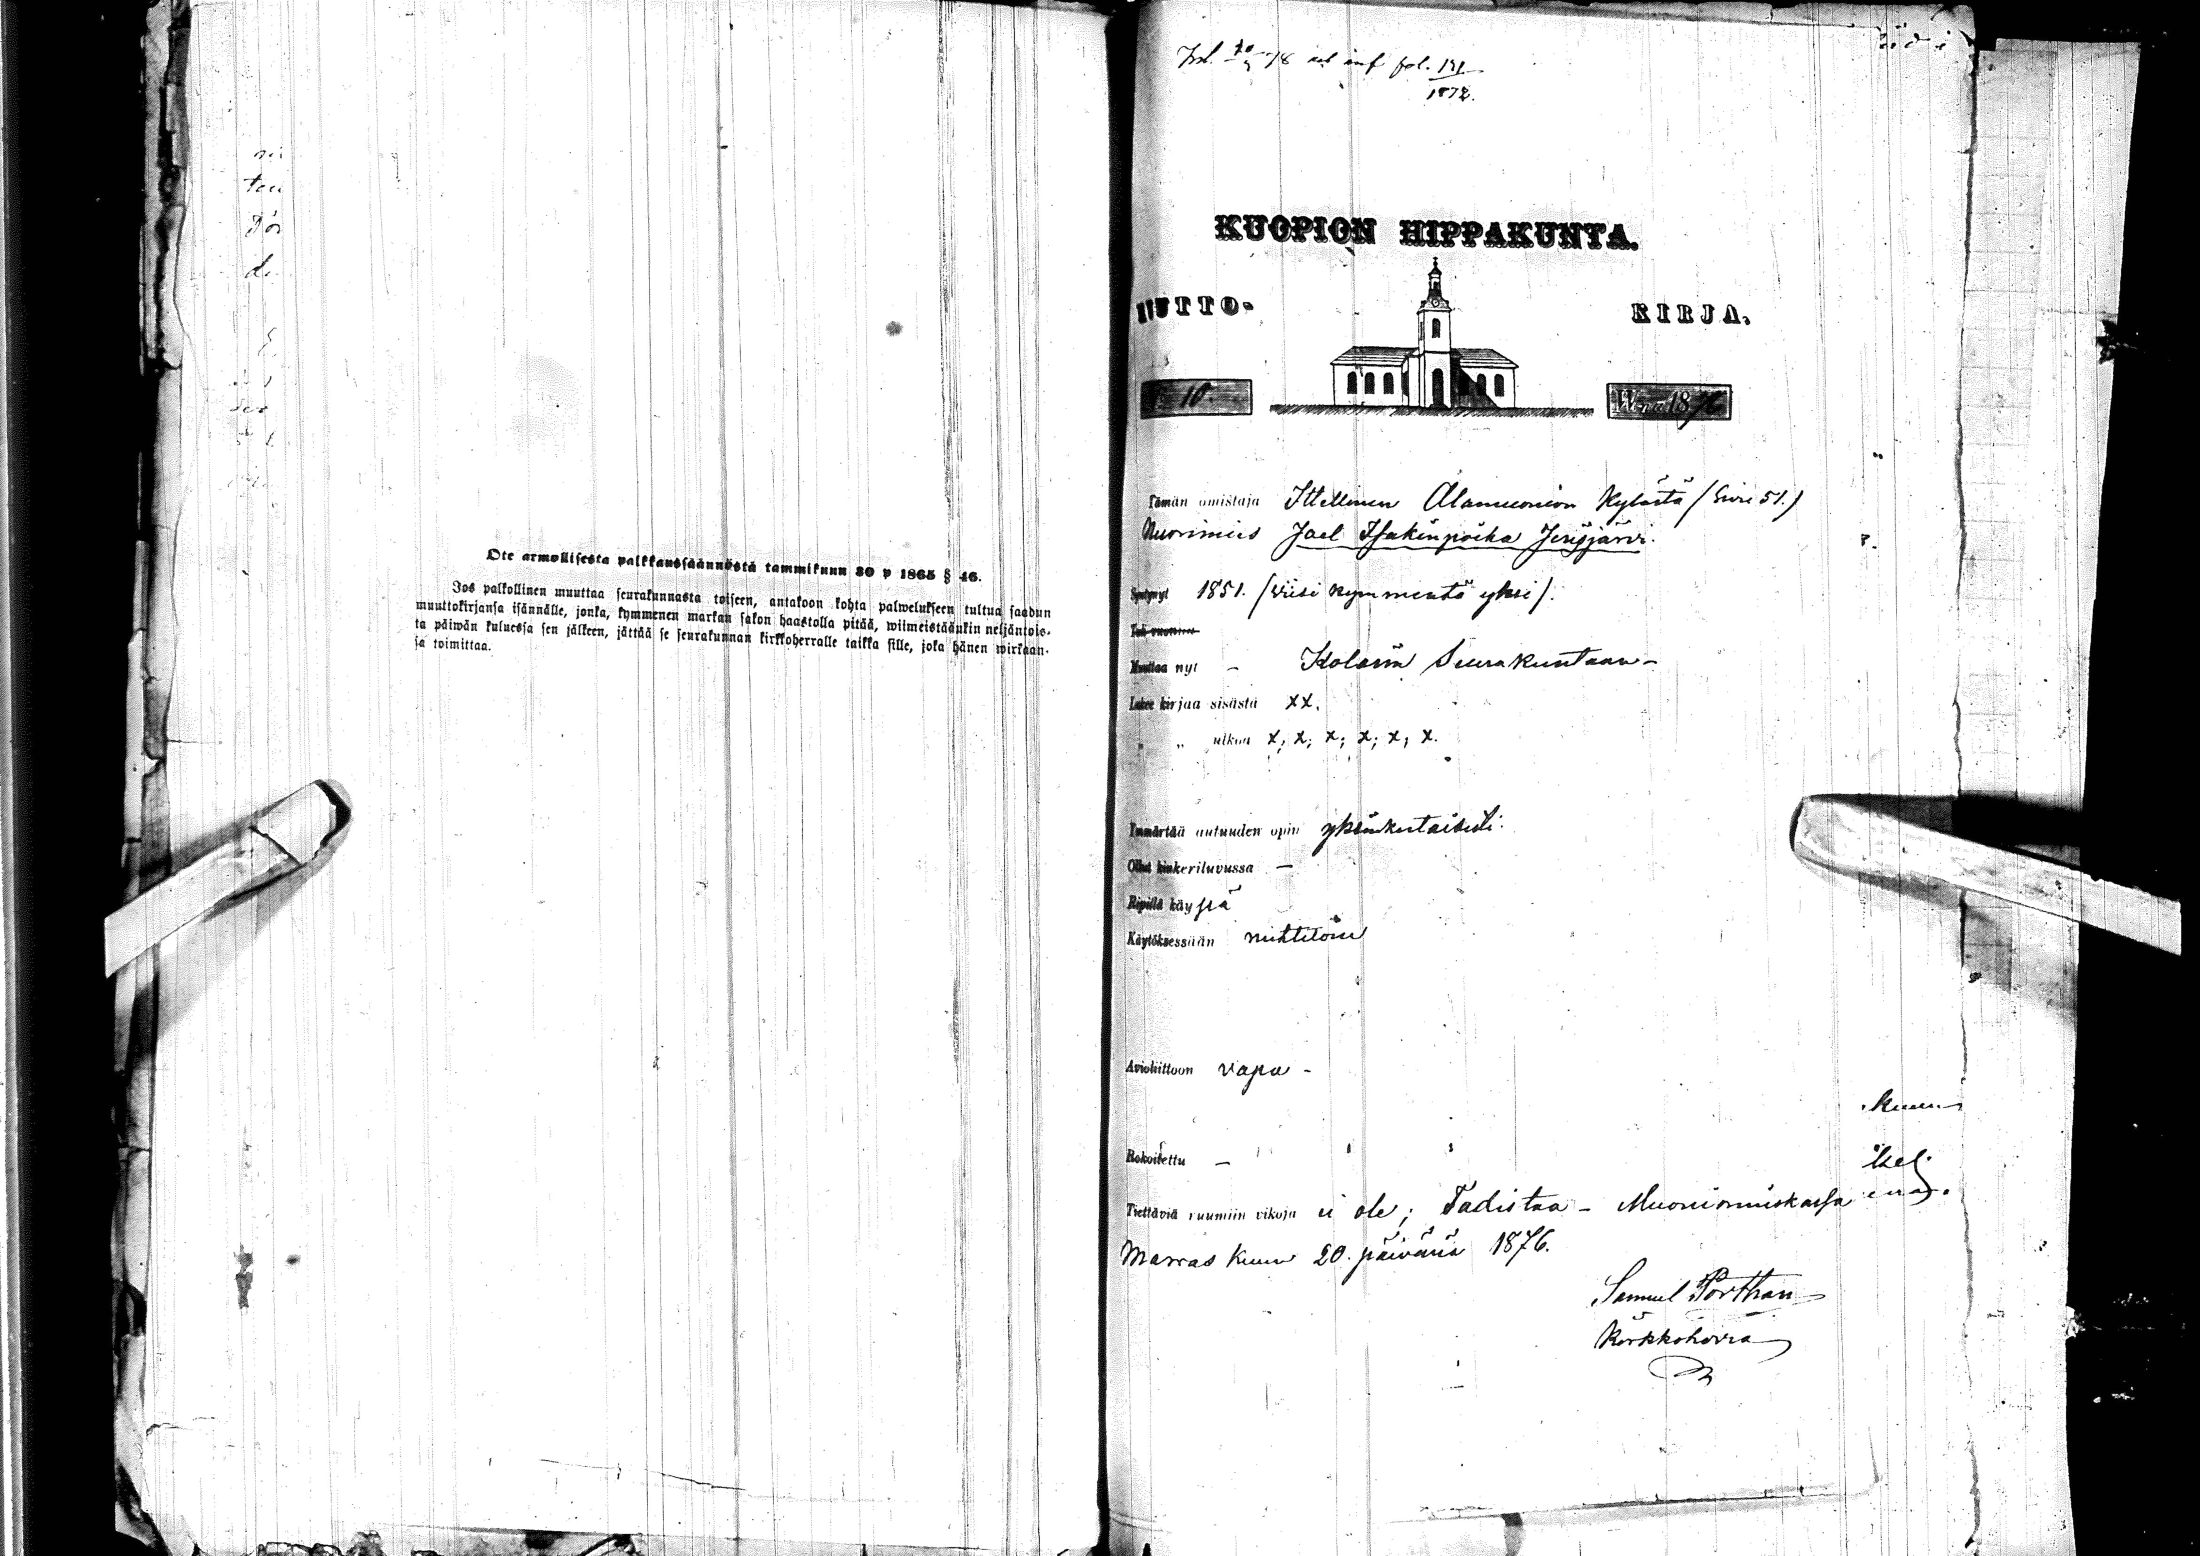 Ote armollisesta palkkaussäännöstä tammikuun 30 p 1865 § 46.
Jos palkollinen muuttaa seurakunnasta toiseen, antakoon kohta palwelukseen tultua saadun
muuttokirjansa isännälle, jonka, kymmenen markan sakon haastolla pitää, wiimeistäänkin neljäntois-
ta päiwän kuluessa sen jälkeen, jättää se seurakunnan kirkkoherralle taikka sille, joka hänen wirkaan-
sa toimittaa.
inf fol. 191
1872.
KUOPION HIPPAKUNTA.
UTTO- KIRJA.
10. Wuonna 1876
Tämän omistaja Ittellinen Alamuonion kylästä (Sivu 51.)
Nuorimies Joel Isakinpoika Jerisjärvi.
Syntynyt 1851. (viisi kymmentä yksi).
Tuli vuonna
Muuttaa nyt – Kolarin Seurakuntaan –
Lukee kirjaa sisästä xx.
„ „ ulkoa x; x; x; x; x, x.
Ymmärtää autuuden opin yksinkertaisesti.
Ollut kinkeriluvussa –
Ripillä käypä
Käytöksessään nuhtetoin
Avioliittoon vapa –
Rokoitettu –
Tiettäviä ruumiin vikoja ei ole; Todistaa – Muonionniskassa
Marras kuun 20. päivänä 1876.
Samuel Porthan
Kirkkoherra